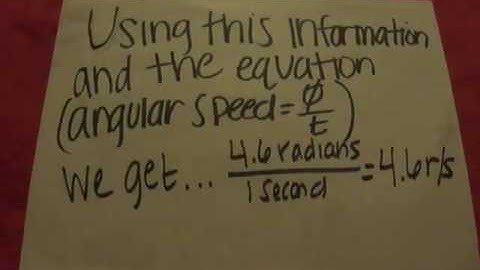 Using this information
and the equation
(angular speed = Ø/t)
we get... 4.6 radians/1 second = 4.6 r/s